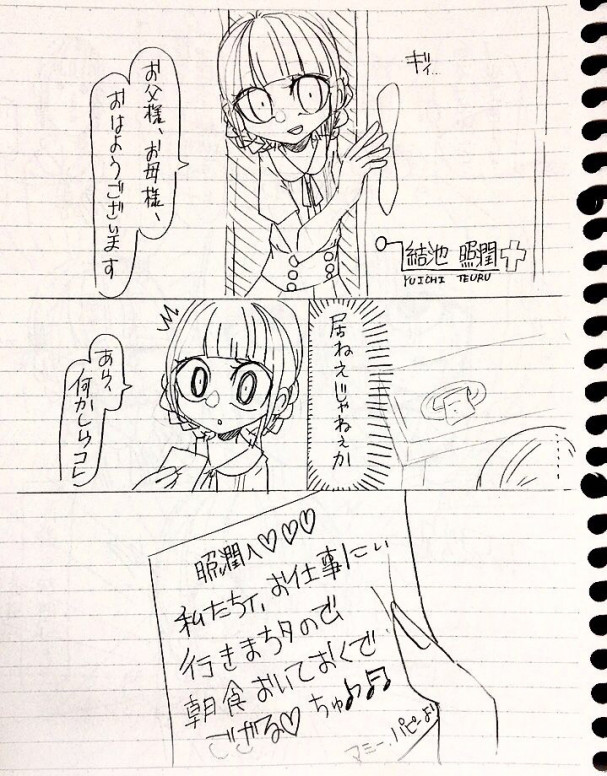 ギィ…
お父様、お母様、
おはようございます
結池 照潤
YUICHI TEURU
居ねえじゃねぇか
あら、
何かしらコレ
照潤へ♡♡♡
私たちτ、お仕事にぃ
行きまちタので
朝食おいておくで
ござる♡ ちゅ♪♫
マミー、パピーより